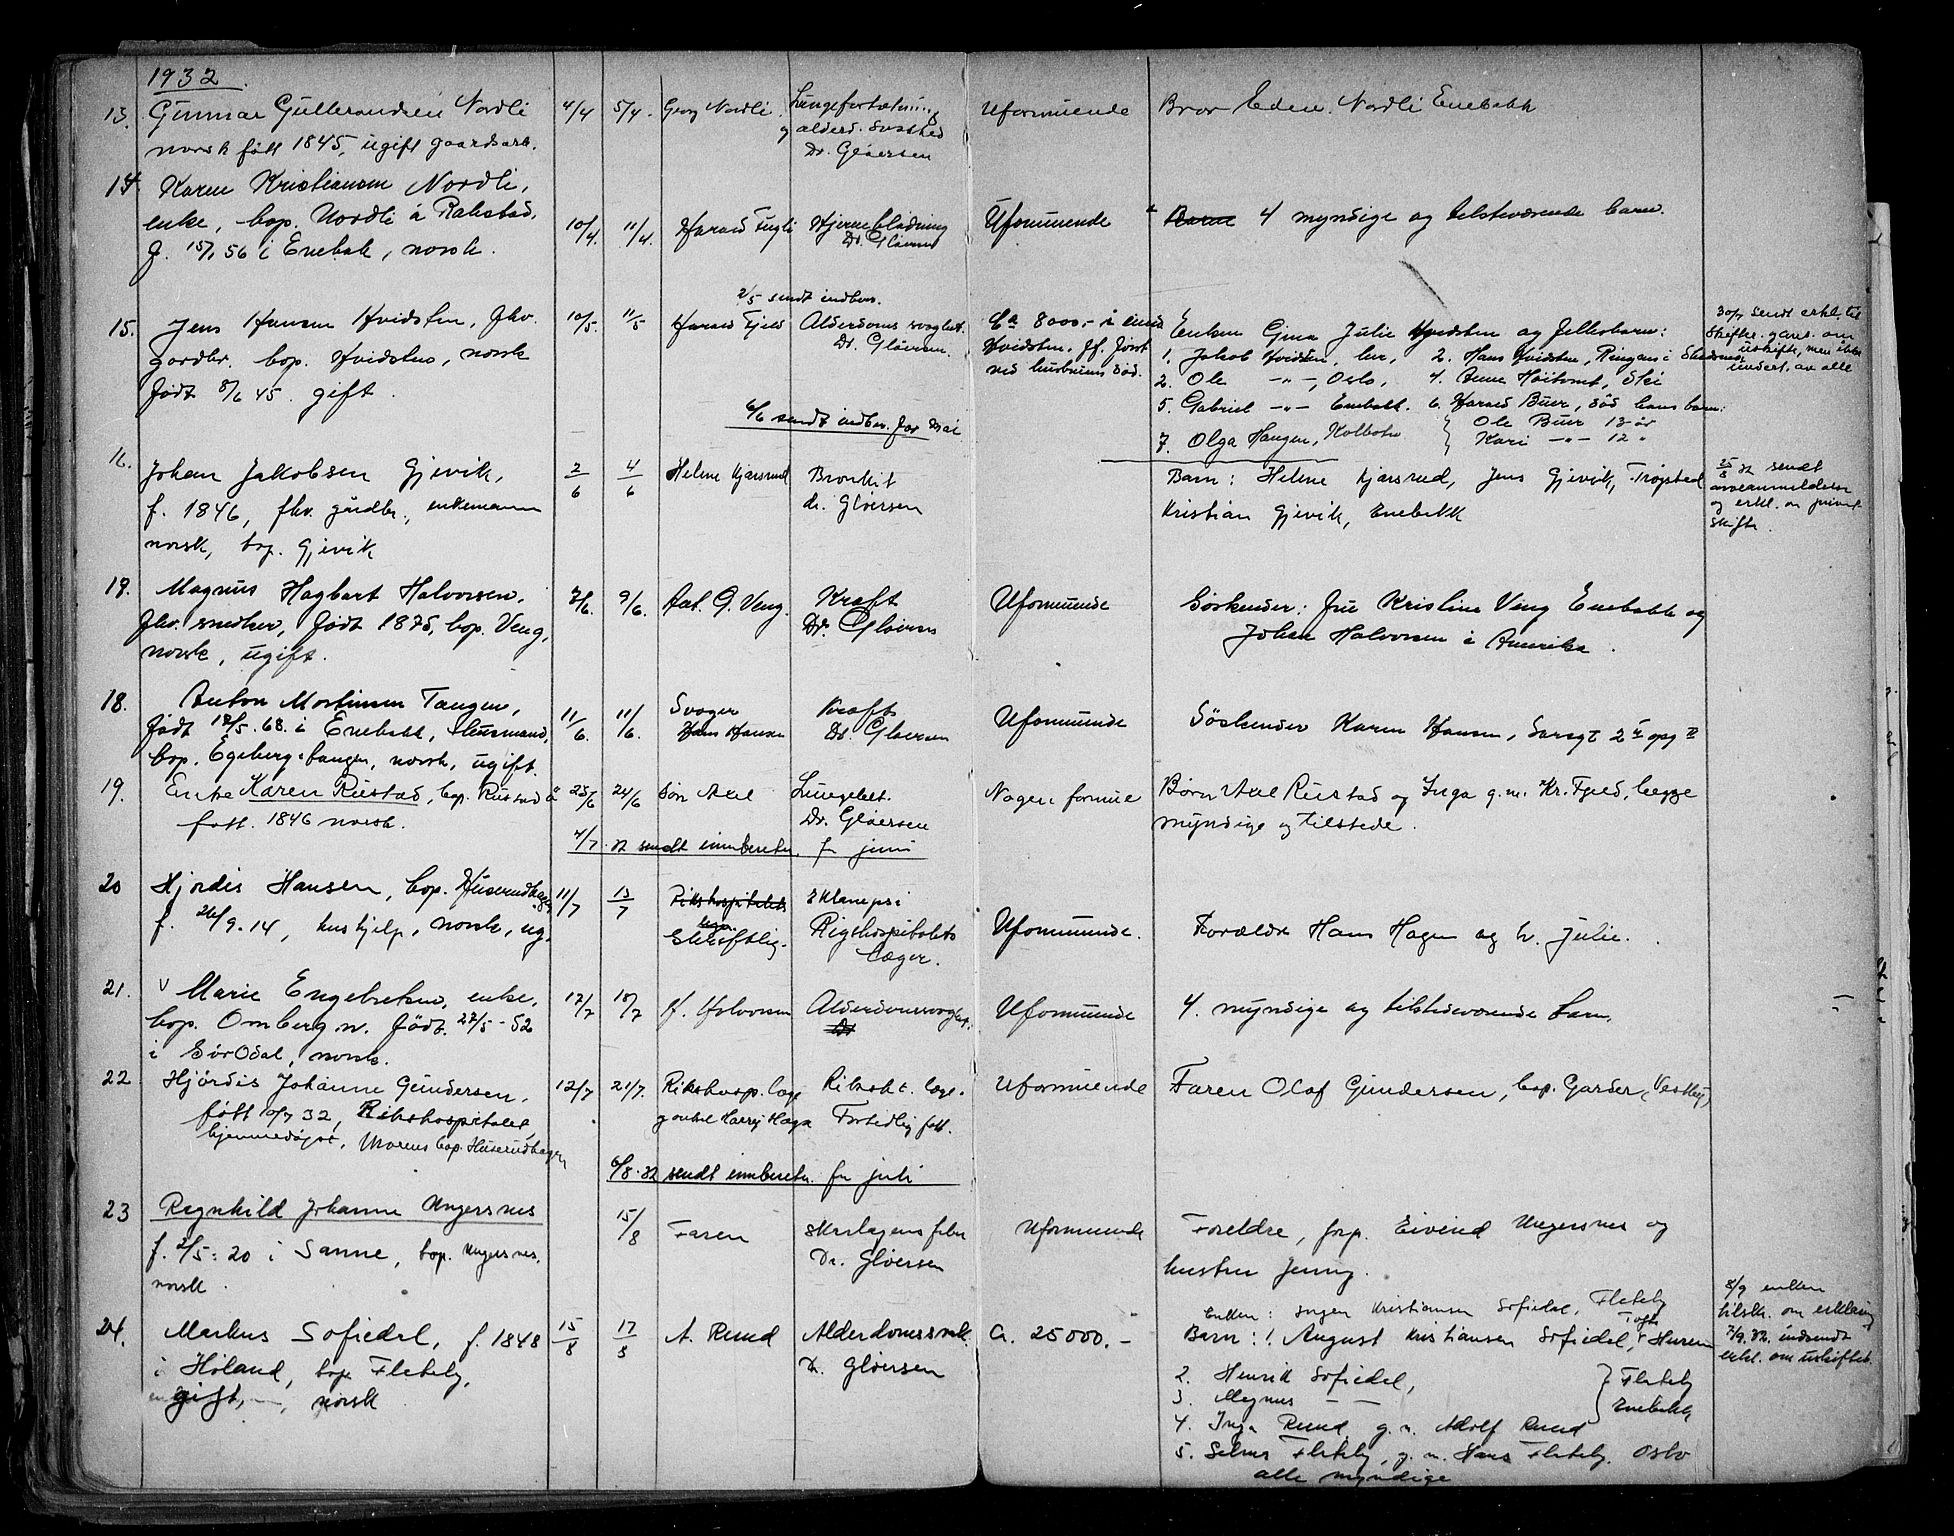 1932
13. Gunnar Gulbrandsen Nordli 4/4 5/4. Georg Nordli. Lungebetændelse Uformuende Bror Edvin Nordli Enebakk
norsk født 1845, ugift gaardsarb. og alderd. svakhed
Dr. Gløersen
14 Karen Kristiansen Nordli,
enke, bop. Nordli å Rakstad, 10/4. 11/4. Harald Fugli Hjerneblødning Uformuende 4 myndige og tilstedeværende barn.
f. 15/1 56 i Enebak, norsk. Dr. Gløersen
2/5 sendt indber.
15. Jens Hansen Hvidsten, fhv. 10/5. 11/5 Harald Fjeld Alderdoms svaghet. Ca 8000,- i Enken Gina Julie Hvidsten og fellesbarn: 30/5 sendt erkl. til
gardbr. bop. Hvidsten, norsk Dr. Gløersen. Hvidsten. 1. Jakob Hvidsten, her, 2. Hans Hvidsten, Ringnes i Skifter. om
født 8/6 45. gift. ved hustruens død. 2. Ole -"-, Oslo, 4. Anne Høitomt, Ski uskifte, men ikke undert. av alle
6/6 sendt indber. for Mai 5. Gabriel -"- Enebakk. 6. Harald Buer, død hans barn:
7. Olga Haugen, Kolbotn } Ole Buer 13 år
Kari -"- 12 "
16. Johan Jakobsen Gjevik, 2/6 4/6 Helene Kjærsrud Bronkit Barn: Helene Kjærsrud, Jens Gjevik, Trøgstad 25/8 32 sendt
f. 1846, fhv. gårdbr., enkemann dr. Gløersen Kristian Gjevik, Enebakk arveanmeldelse
norsk, bop. Gjevik og erkl. om privat
skifte.
17. Magnus Hagbart Halvorsen, 7/6. 9/6. Aat. G. Veng. Kræft Uformuende Søskender: Fru Kristine Veng Enebakk og
fhv. snedker, født 1875, bop. Veng, Dr. Gløersen Johan Halvorsen i Amerika.
norsk, ugift.
18. Anton Mortinsen Tangen, 11/6. 11/6. Svoger Kræft Uformuende Søskender Karen Hansen,
født 12/5. 68. i Enebakk, husmand, Hans Hansen Dr. Gløersen
bop. Egeberg-tangen, norsk, ugift.
19. Enke Karen Rustad, bop. Rustad ø 23/6 24/6 Søn Axel Lungebet. Nogen formue Børn Axel Rustad og Inga g.m. Kr. Fjeld, begge
født. 1846 norsk. Dr. Gløersen myndige og tilstede.
4/7. 32 sendt innberetn. for juni
20 Hjørdis Hansen, bop. Huserudhagen 11/7 13/7 Rikshospitalets Eklampsi
f. 26/9. 14, hushjelp, norsk, ug. lege. Skriftlig. Rigshospitalets Læger. Uformuende. Forældre Hans Hagen og h. Julie.
21. Marie Engebretsen, enke, 17/7 18/7 H. Halvorsen Alderdomssvaghet. Uformuende 4. myndige og tilstedeværende barn.
bop. Omberg n. født. 27/5-52
i Sør Odal, norsk.
22 Hjørdis Johanne Gundersen, 12/7 21/7. Rikshosp. læge Riksh. læge. Uformuende Faren Olaf Gundersen, bop. Garder (Vestby)
født 10/7 32, Rikshospitalet, og onkel Harry Haga For tidlig født.
hjemmedøpt, Morens bop. Huserudhagen
6/8. 32 sendt innberetn. for juli
23 Ragnhild Johanne Ungersnes 15/8 Faren Skarlagensfeber Uformuende Foreldre, forp. Eivind Ungersnes og
f. 2/5: 20 i Sanne, bop. Ungersnes, Dr. Gløersen hustru Jenny.
norsk.
Enken: Inger Kristiansen Sofiedal, Flateby 8/9 enken
24. Markus Sofiedal, f. 1848 15/8 17/8 A. Ruud Alderdomssvak. Ca. 25000.- Barn: 1. August Kristiansen Sofiedal, Tofte i Hurum tilsk. om erklæring
i Høland, bop. Flateby, Dr. Gløersen 2. Henrik Sofiedal, } Flateby 7/9. 32. indsendt
gift, norsk 3. Magnus - - Enebakk erkl. om uskiftet.
4. Inga Ruud, g. m. Adolf Ruud
5. Selma Flateby, g. m. Hans Flateby. Oslo
alle myndige